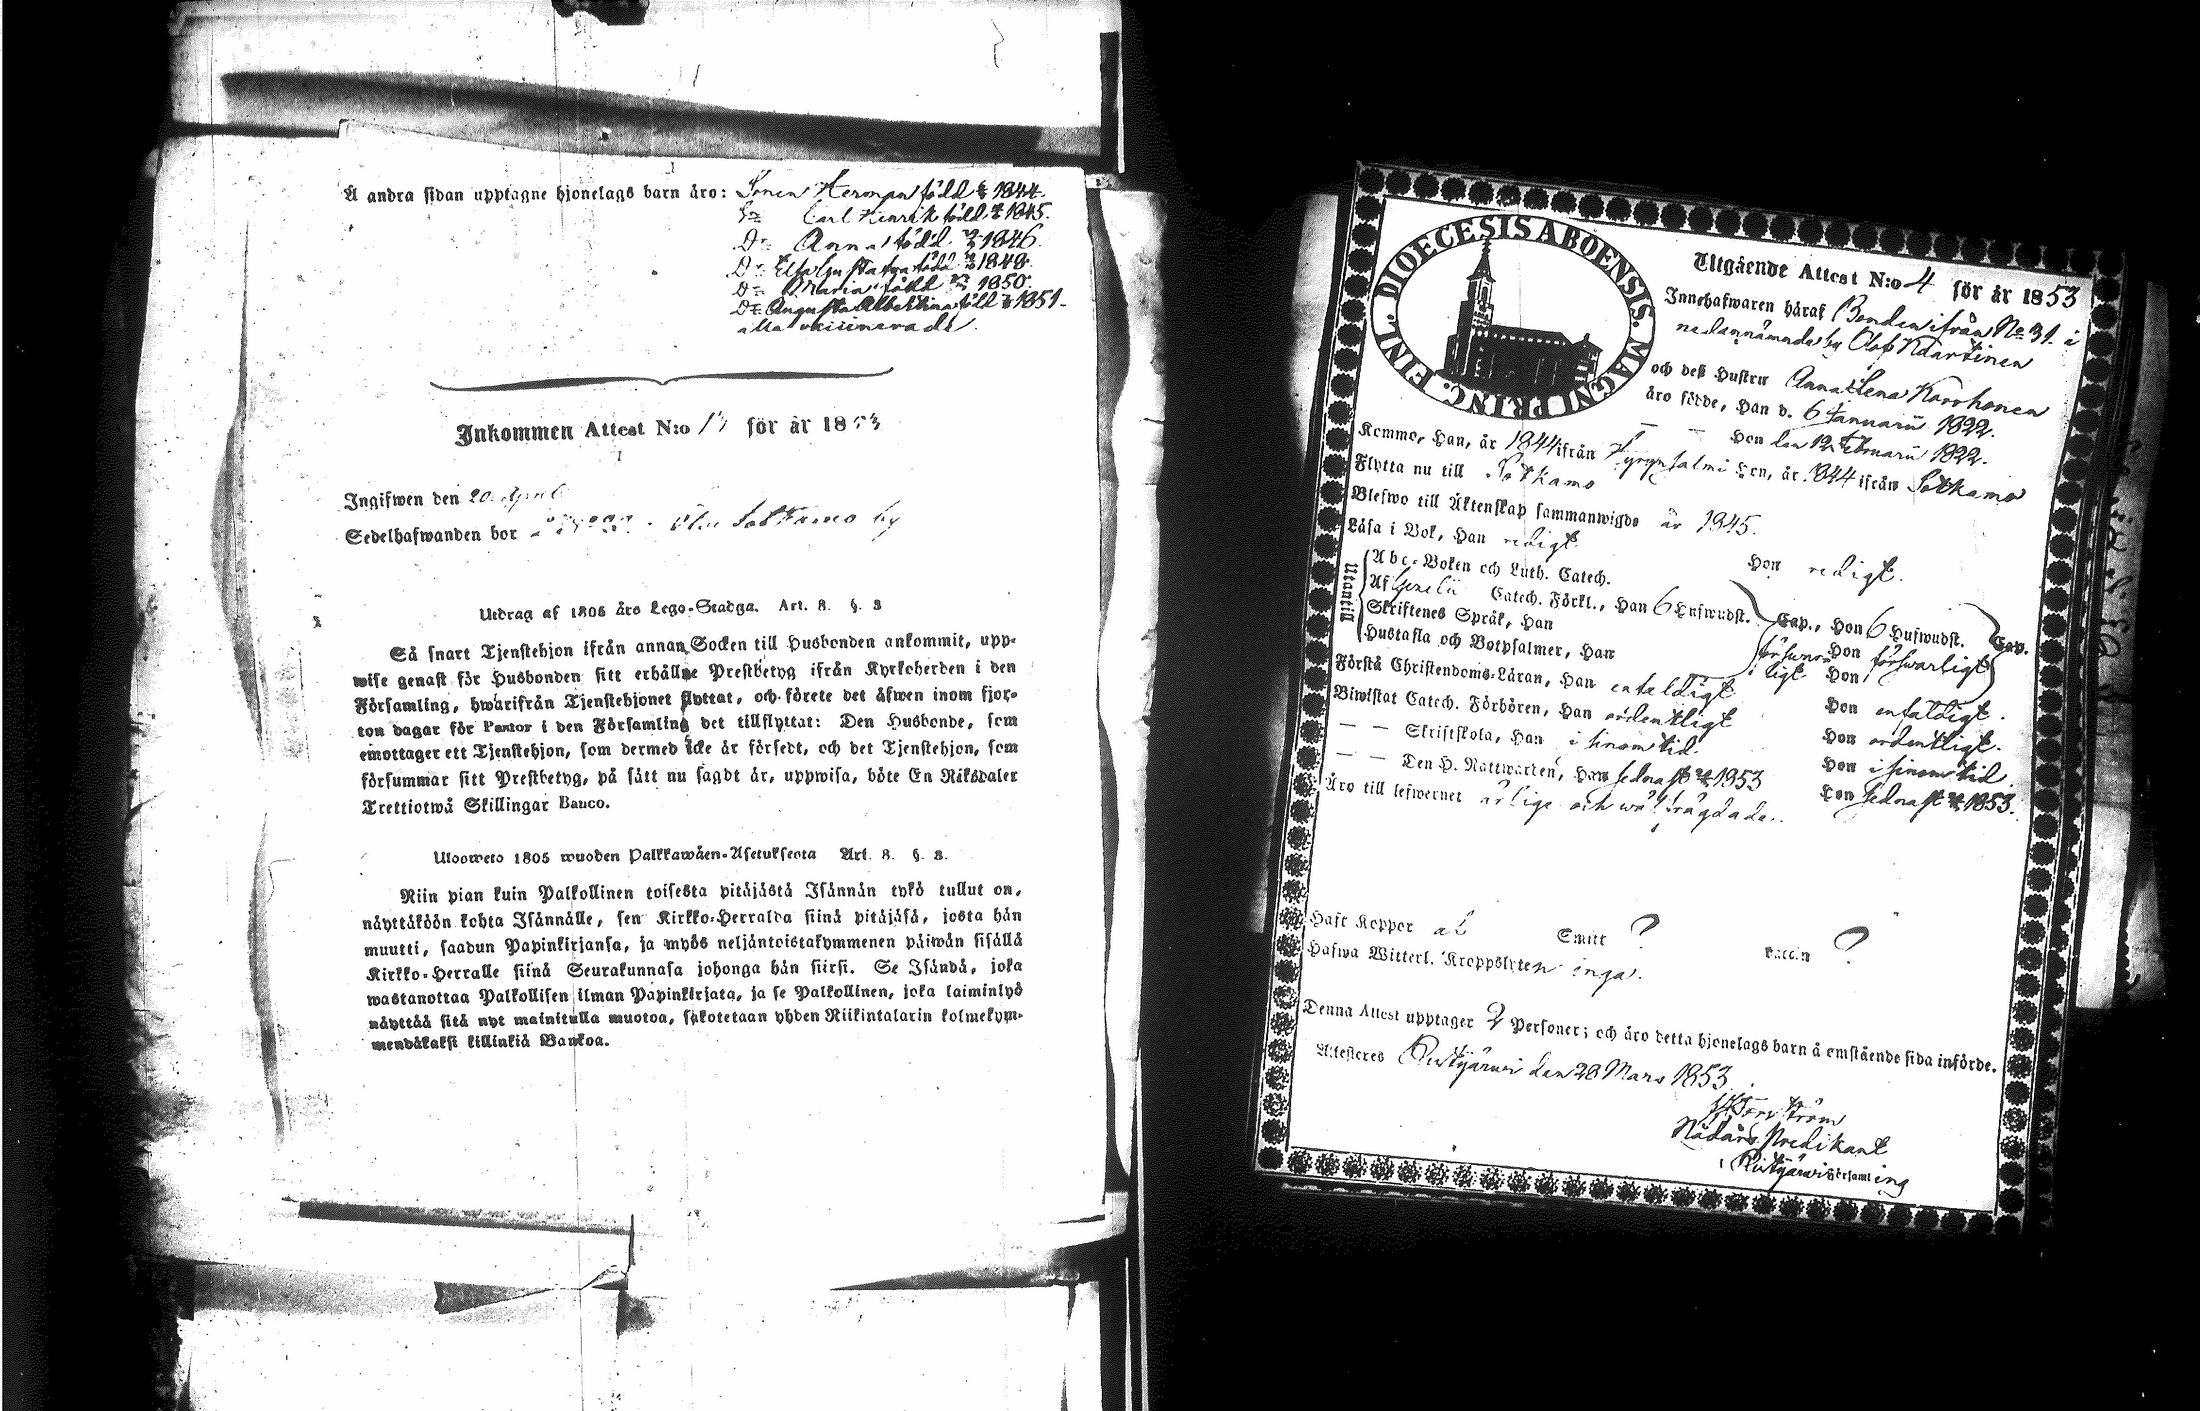 Å andra sidan upptagne hjonelags barn äro: Sonen Herman född 1844.
Carl Henrik född 1845.
Dr Anna född 1846.
Dr Elsa Gustava född 1848.
Dr Maria född 1850.
Dr Augusta Albertina född 1851.
alla vaccinerade.
Inkommen Attest N:o 13 för år 1853
Ingifwen den 20 April
Sedelhafwanden bor Sotkamo by
Utdrag af 1805 års Lego-Stadga. Art. 8. §. 3
Så snart Tjenstehjon ifrån annan Socken till Husbonden ankommit, upp-
wise genast för Husbonden sitt erhållne Prestbetyg ifrån Kyrkoherden i den
Församling, hwarifrån Tjenstehjonet flyttat, och förete det äfwen inom fjor-
ton dagar för Pastor i den Församling det tillflyttat: Den Husbonde, som
emottager ett Tjenstehjon, som dermed icke är försedt, och det Tjenstehjon, som
försummar sitt Prestbetyg, på sätt nu sagdt är, uppwisa, böte En Riksdaler
Trettiotwå Skillingar Banco.
Ulosweto 1805 wuoden Palkkawäen-Asetuksesta Art. 8. §. 3.
Niin pian kuin Palkollinen toisesta pitäjästä Isännän tykö tullut on,
näyttäköön kohta Isännälle, sen Kirkko-Herralda siinä pitäjäsä, josta hän
muutti, saadun Papinkirjansa, ja myös neljäntoistakymmenen päiwän sisällä
Kirkko-Herralle siinä Seurakunnasa johonga hän siirsi. Se Isändä, joka
wastanottaa Palkollisen ilman Papinkirjata, ja se Palkollinen, joka laiminlyö
näyttää sitä nyt mainitulla muotoa, sakotetaan yhden Riikintalarin kolmekym-
mendäkaksi killinkiä Bankoa.
DIOECESIS ABOENSIS. MAGNI PRINC. FINL.
Utgående Attest N:o 4 för år 1853
Innehafwaren häraf Bonden ifrån No 31 i
nedannämnda by Olof Martinen
och deß Hustru Anna Lena Korhonen
äro födde, Han d. 6 Januarii 1822.
Hon den 12 Februarii 1822.
Kommo, Han, år 1844 ifrån Hyrynsalmi Hon, år 1844 ifrån Sotkamo
Flytta nu till Sotkamo
Blefwo till Äktenskap sammanwigde år 1845.
Läsa i Bok, Han redigt. Hon redigt.
Utantill
Abc-Boken och Luth. Catech.
Af Gerelii Catech. Förkl., Han 6 Hufwudst. Cap., Hon 6 Hufwudst. Cap.
Skriftenes Språk, Han försvarligt Hon försvarligt
Hustafla och Botpsalmer, Han Hon
Förstå Christendoms-Läran, Han enfaldigt Hon enfaldigt.
Biwistat Catech. Förhören, Han ordentligt Hon ordentligt.
— — Skriftskola, Han i sinom tid. Hon i sinom tid
— — Den H. Nattwarden, Han sednast 1853 Hon sednast 1853.
Äro till lefwernet ärlige och wäl frägdade.
Haft Koppor ab Smitt ? Vaccin ?
Hafwa Witterl. Kroppslyten inga.
Denna Attest upptager 2 Personer; och äro detta hjonelags barn å omstående sida införde.
Attesteres Ristijärwi den 28 Mars 1853.
Nådårs Predikant
i Ristijärwi församling